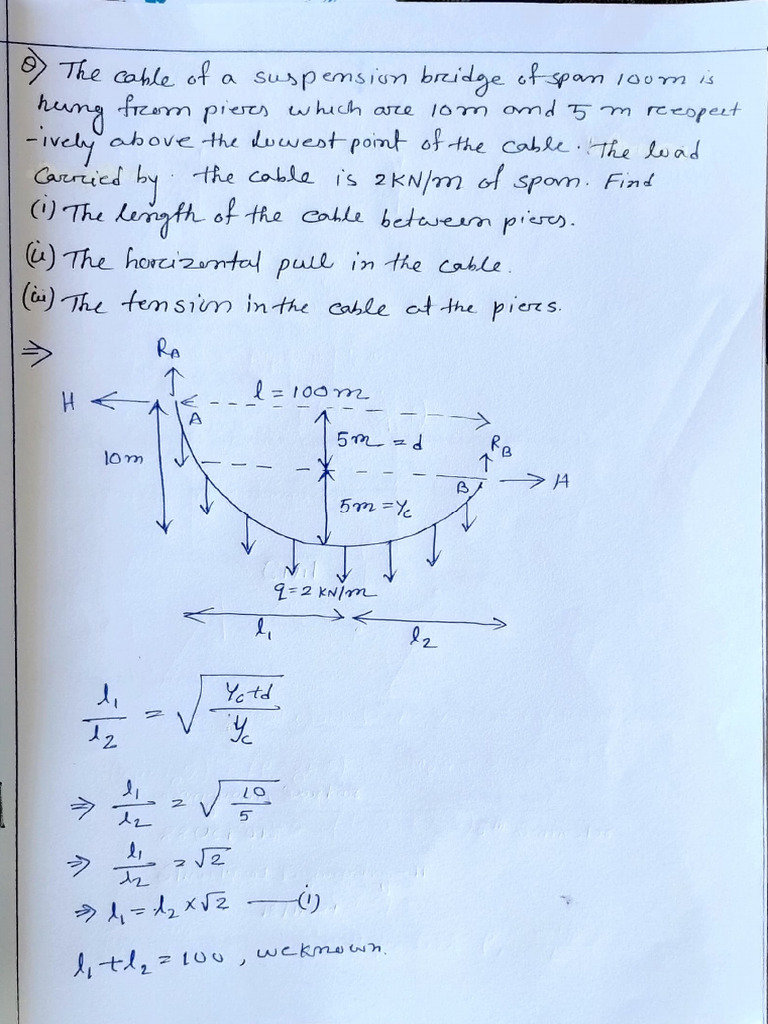 Q) The cable of a suspension bridge of span 100m is
hung from piers which are 10m and 5 m respect
-ively above the lowest point of the cable. The load
carried by the cable is 2KN/m of span. Find
(i) The length of the cable between piers.
(ii) The horizontal pull in the cable.
(iii) The tension in the cable at the piers.
⇒
R_A
H
l = 100m
A
5m = d
R_B
10m
B
H
5m = Y_c
q = 2 KN/m
l₁
l₂
l₁/l₂ = √((Y_c+d)/Y_c)
⇒ l₁/l₂ = √(10/5)
⇒ l₁/l₂ = √2
⇒ l₁ = l₂ × √2 —(i)
l₁ + l₂ = 100, we known.